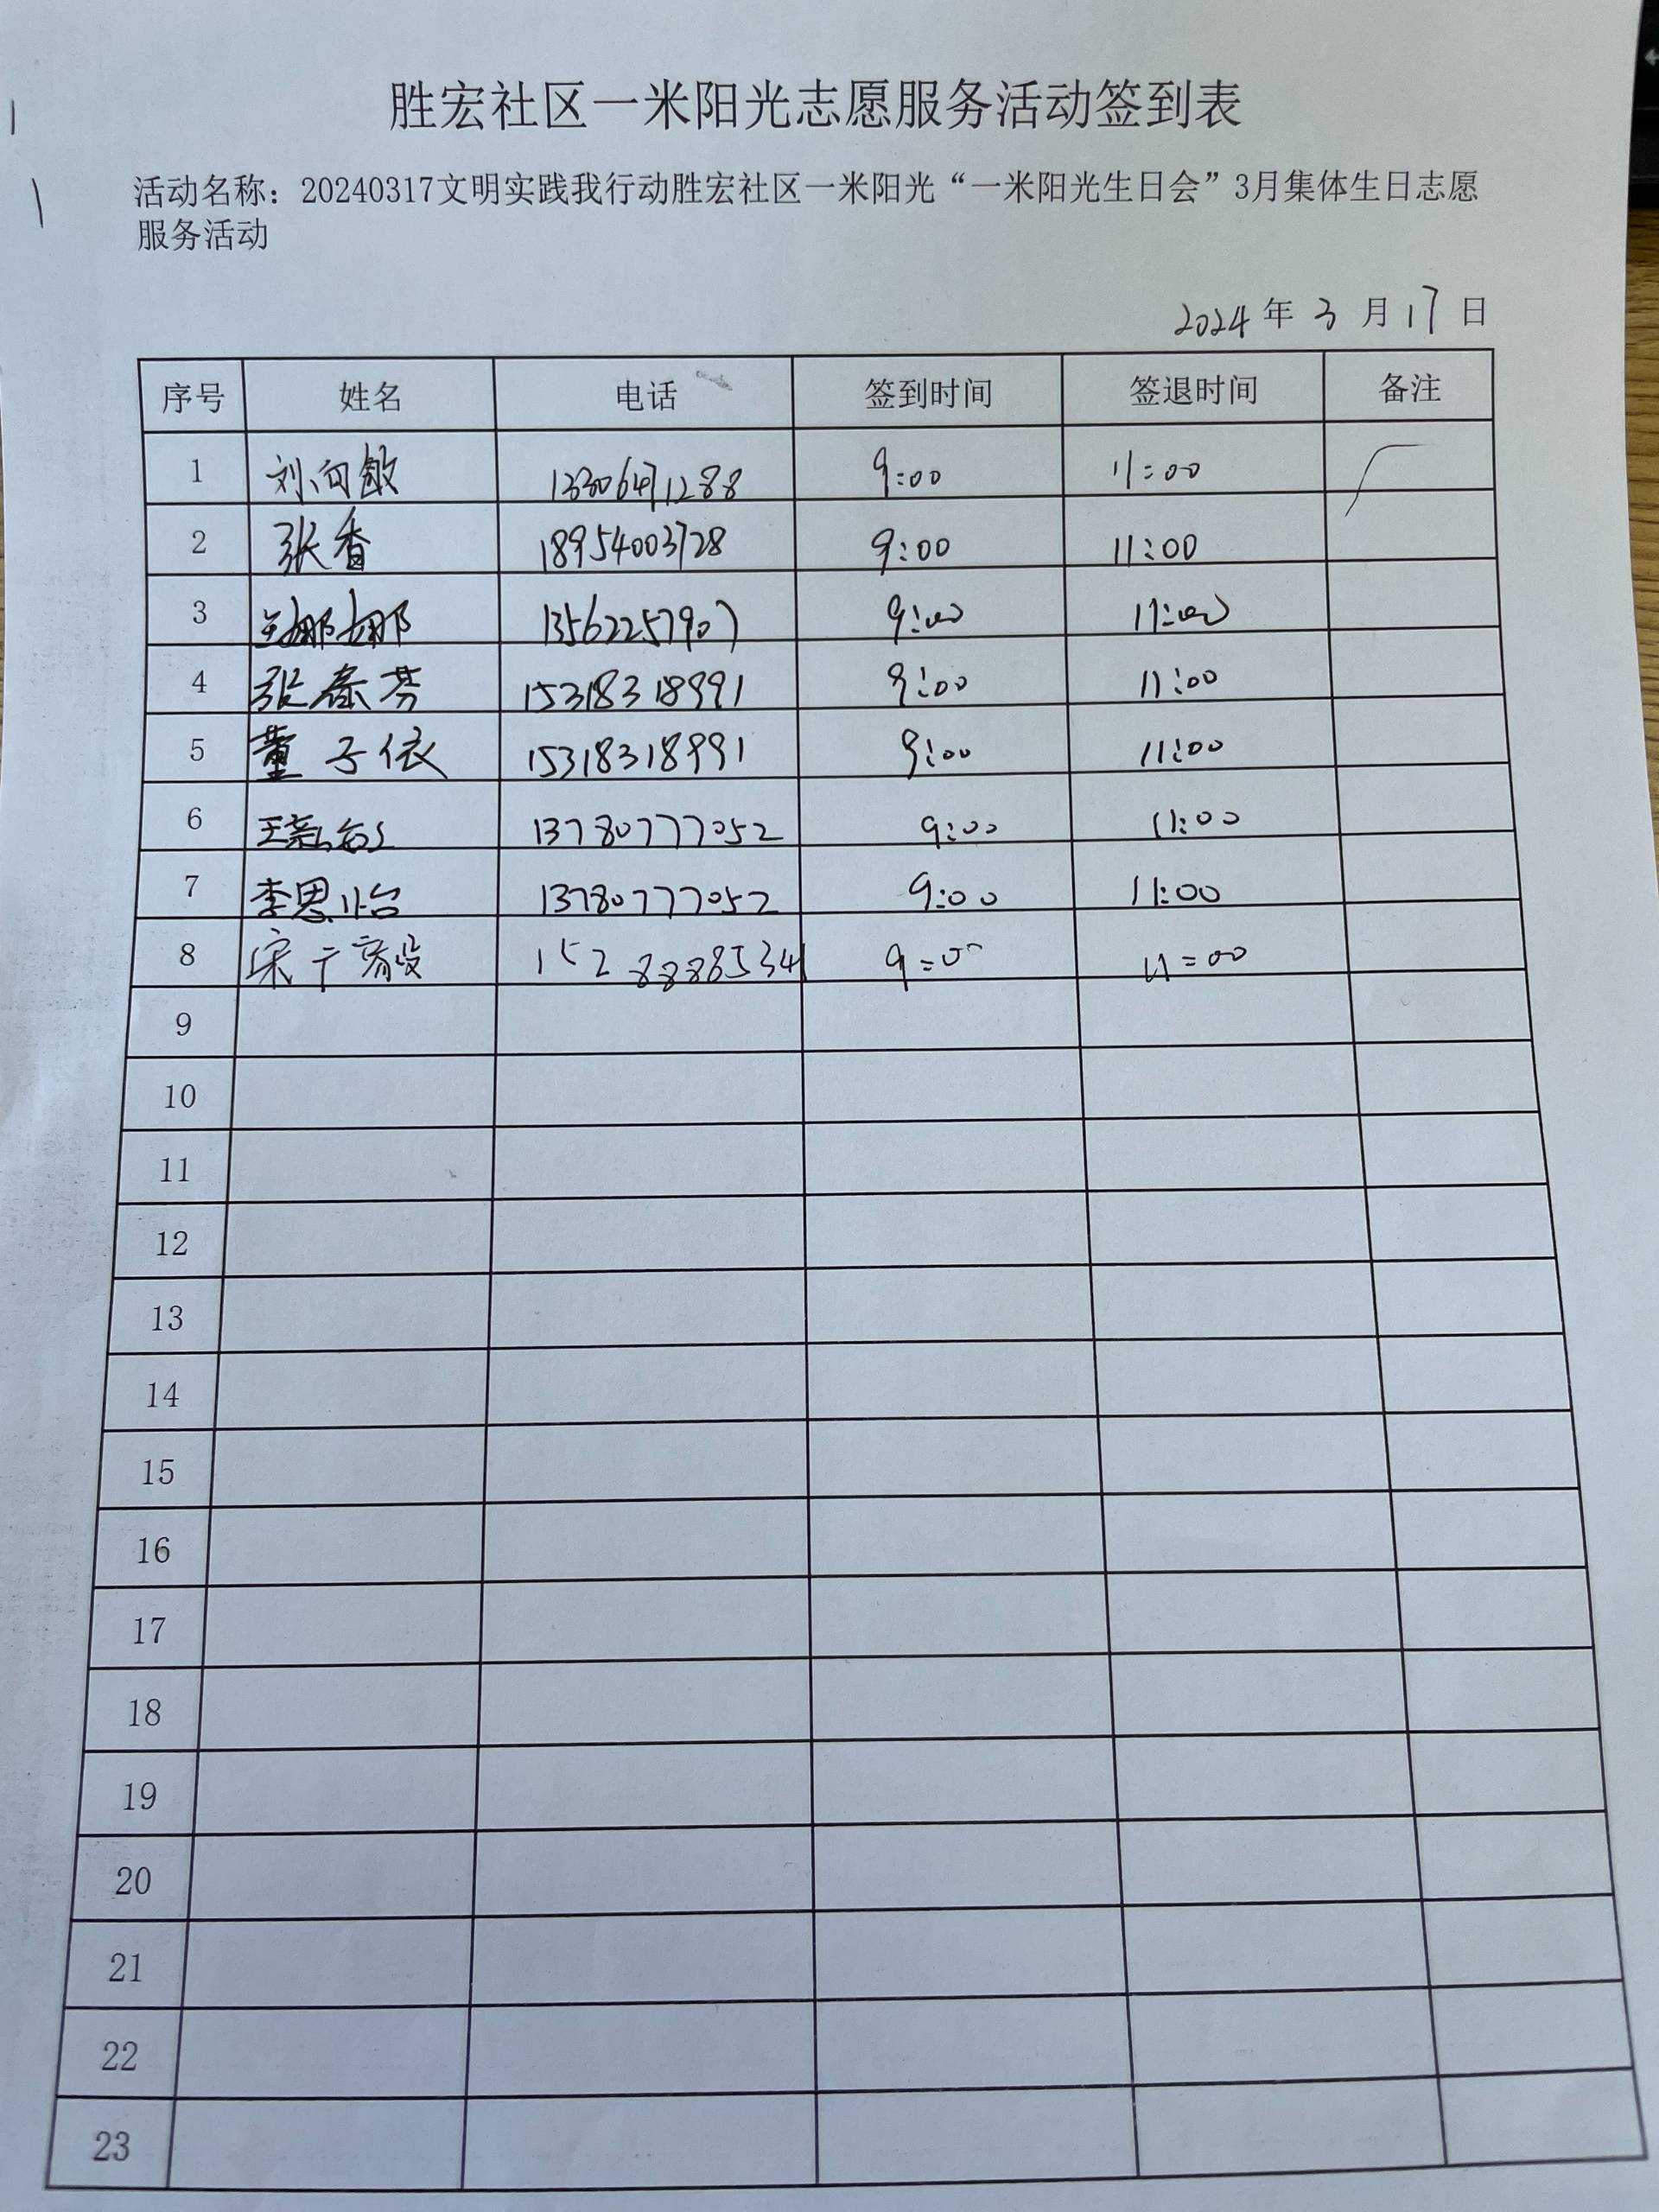 胜宏社区一米阳光志愿服务活动签到表
活动名称：20240317文明实践我行动胜宏社区一米阳光“一米阳光生日会”3月集体生日志愿
服务活动
2024年3月17日
序号 姓名 电话 签到时间 签退时间 备注
1 刘向敏 13306471288 9:00 11:00
2 张香 18954003728 9:00 11:00
3 娜娜 13562257907 9:00 11:00
4 张春芳 15318318991 9:00 11:00
5 董子依 15318318991 9:00 11:00
6 王 13780777052 9:00 11:00
7 李思怡 13780777052 9:00 11:00
8 宋 15288885341 9:00 11:00
9
10
11
12
13
14
15
16
17
18
19
20
21
22
23